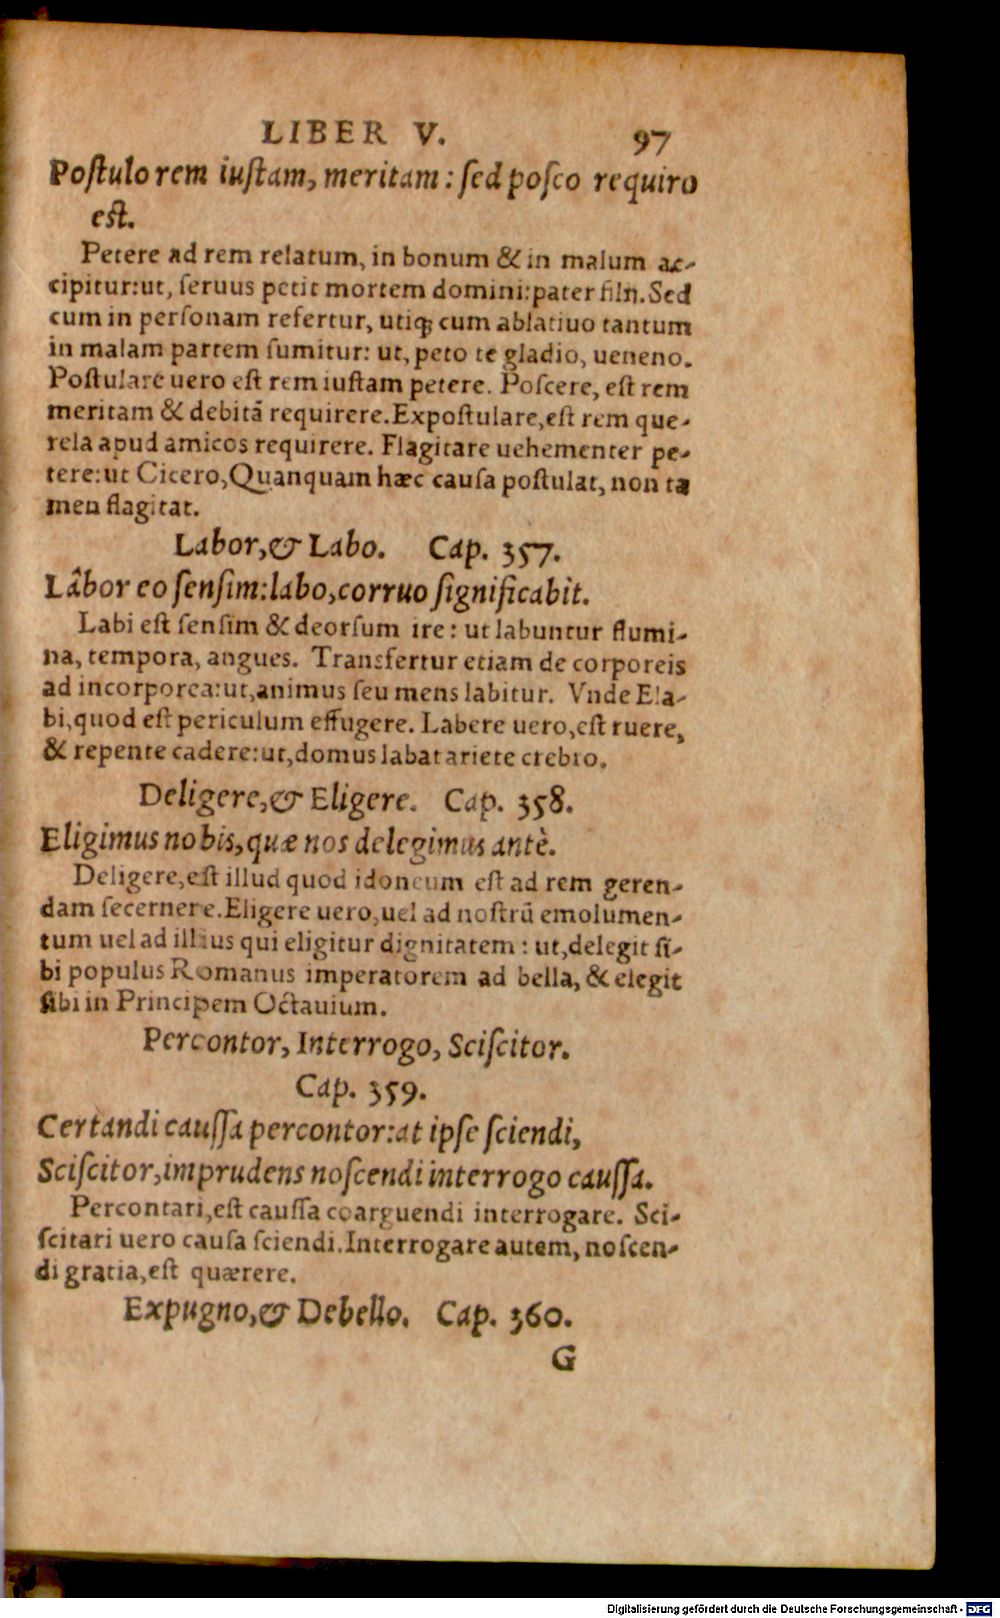 LIBER V. 97
Poſtulo rem iuſtam, meritam: ſed poſco requiro
eſt.
Petere ad rem relatum, in bonum & in malum ac-
cipitur: ut, ſeruus petit mortem domini: pater filij. Sed
cum in perſonam refertur, utiq; cum ablatiuo tantum
in malam partem ſumitur: ut, peto te gladio, ueneno.
Poſtulare uero eſt rem iuſtam petere. Poſcere, eſt rem
meritam & debitã requirere. Expoſtulare, eſt rem que-
rela apud amicos requirere. Flagitare uehementer pe-
tere: ut Cicero, Quanquam hæc cauſa poſtulat, non ta
men flagitat.
Labor, & Labo. Cap. 357.
Lâbor eo ſenſim: labo, corruo ſignificabit.
Labi eſt ſenſim & deorſum ire: ut labuntur flumi-
na, tempora, angues. Transfertur etiam de corporeis
ad incorporea: ut, animus ſeu mens labitur. Vnde Ela-
bi, quod eſt periculum effugere. Labere uero, eſt ruere,
& repente cadere: ut, domus labat ariete crebro.
Deligere, & Eligere. Cap. 358.
Eligimus nobis, quæ nos delegimus antè.
Deligere, eſt illud quod idoneum eſt ad rem geren-
dam ſecernere. Eligere uero, uel ad noſtrũ emolumen-
tum uel ad illius qui eligitur dignitatem: ut, delegit ſi-
bi populus Romanus imperatorem ad bella, & elegit
ſibi in Principem Octauium.
Percontor, Interrogo, Sciſcitor.
Cap. 359.
Certandi cauſſa percontor: at ipſe ſciendi,
Sciſcitor, imprudens noſcendi interrogo cauſſa.
Percontari, eſt cauſſa coarguendi interrogare. Sci-
ſcitari uero cauſa ſciendi. Interrogare autem, noſcen-
di gratia, eſt quærere.
Expugno, & Debello. Cap. 360.
G
Digitalisierung gefördert durch die Deutsche Forschungsgemeinschaft - DFG